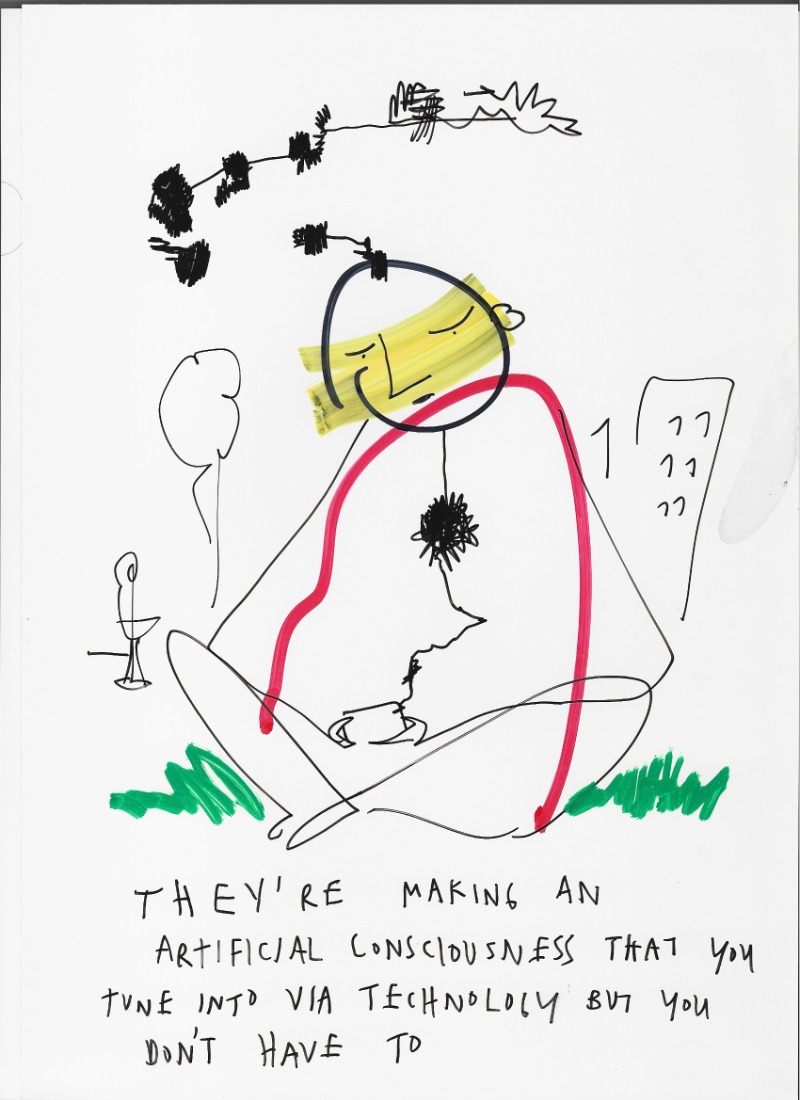 THEY'RE MAKING AN
ARTIFICIAL CONSCIOUSNESS THAT YOU
TUNE INTO VIA TECHNOLOGY BUT YOU
DON'T HAVE TO